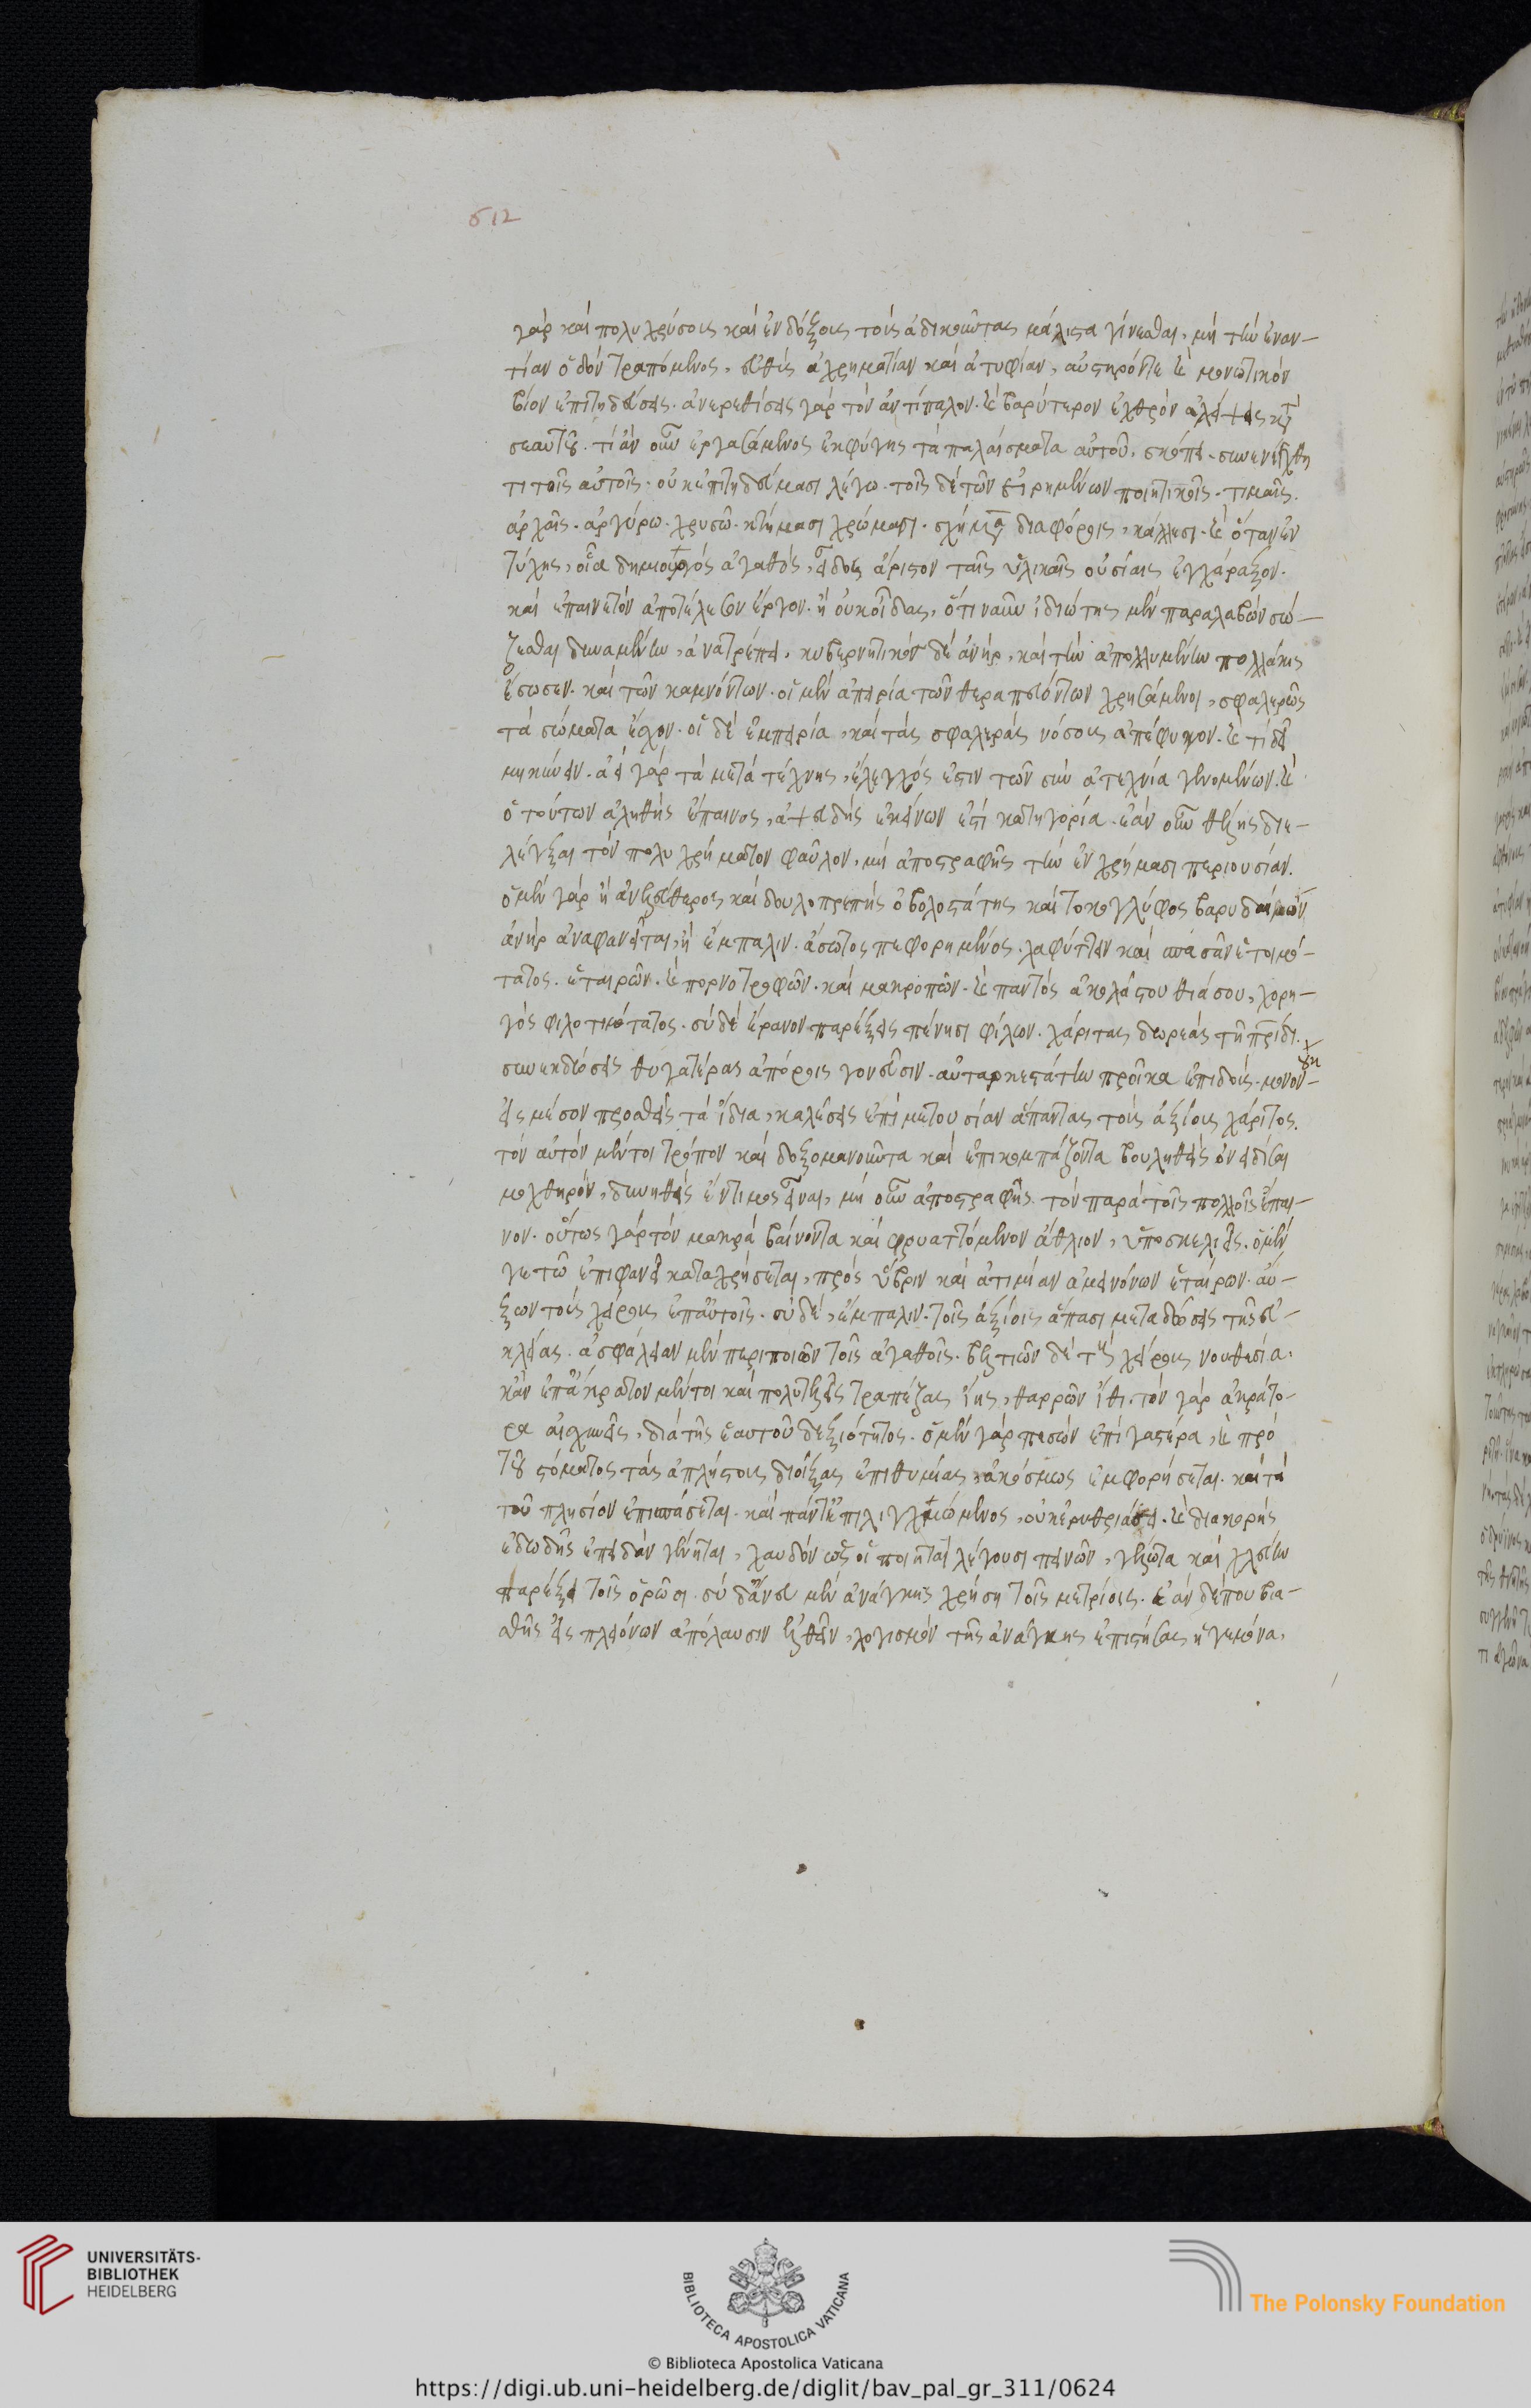 512
γὰρ καὶ πολυχρύσους καὶ ἐνδόξους τοὺς ἀδικοῦντας μάλιστα γίνεσθαι, μὴ τὴν ἐναν-
τίαν ὁδὸν τραπόμενος, εὐθὺς ἀχρηματίαν καὶ ἀτυφίαν, αὐστηρόν τε καὶ μονωτικὸν
βίον ἐπιτηδεύσεις. ἀνερεθίσεις γὰρ τὸν ἀντίπαλον. καὶ βαρύτερον ἐχθρὸν ἀλείψεις κατὰ
σεαυτοῦ. τί ἂν οὖν ἐργασάμενος ἐκφύγῃς τὰ παλαίσματα αὐτοῦ, σκόπει. συνενέχθη
τι τοῖς αὐτοῖς. οὐκ ἐπιτηδεύμασι λέγω. τοῖς δὲ τῶν εἰρημένων ποιητικοῖς. τιμαῖς.
ἀρχαῖς. ἀργύρω. χρυσῶ. κτήμασι χρώμασι. σχήμασι διαφόροις, κάλλεσι. καὶ ὅταν ἐν
τύχης, οἷα δημιουργὸς ἀγαθὸς, εἶδος ἄριστον ταῖς ὑλικαῖς οὐσίαις ἐγχάραξον.
καὶ ἐπαινετὸν ἀποτέλεσον ἔργον. ἢ οὐκ οἶδας, ὅτι ναῦν ἰδιώτης μὲν παραλαβὼν σώ-
ζεσθαι δυναμένην, ἀνατρέπει, κυβερνητικὸς δὲ ἀνήρ, καὶ τὴν ἀπολλυμένην πολλάκις
ἔσωσεν. καὶ τῶν καμνόντων. οἱ μὲν ἀπειρία τῶν θεραπευόντων χρησάμενοι, σφαλερῶς
τὰ σώματα ἔσχον. οἱ δὲ ἐμπειρία, καὶ τὰς σφαλερὰς νόσους ἀπέφυγον. καὶ τί δεῖ
μηκύνειν. ἀεὶ γὰρ τὰ μετὰ τέχνης, ἔλεγχός ἐστιν τῶν σὺν ἀτεχνία γενομένων. καὶ
ὁ τούτων ἀληθὴς ἔπαινος, ἀψευδὴς ἐκείνων ἐστὶ κατηγορία. ἐὰν οὖν θέλῃς διε-
λέγξαι τὸν πολυχρήματον φαῦλον, μὴ ἀποστραφῇς τὴν ἐν χρήμασι περιουσίαν.
ὁ μὲν γὰρ ἢ ἀνελεύθερος καὶ δουλοπρεπὴς ὀβολοστάτης καὶ τοκογλύφος βαρυδαίμων
ἀνὴρ ἀναφανεῖται, ἢ ἔμπαλιν. ἄσωτος πεφορημένος. λαφύττειν καὶ σπαθᾶν ἑτοιμό-
τατος. ἑταιρῶν. καὶ πορνοτρόφων. καὶ μαστροπῶν. καὶ παντὸς ἀκολάστου θιάσου, χορη-
γὸς φιλοτιμότατος. σὺ δὲ ἔρανον παρέξεις πένησι φίλων. χάριτας δωρεὰς τῇ πατρίδι.
συνεκδώσεις θυγατέρας ἀπόροις γονεῦσιν. αὐταρκεστάτην προῖκα ἐπιδούς. μονον-
εἰς μέσον προθεὶς τὰ ἴδια, καλέσεις ἐπὶ μετουσίαν ἅπαντας τοὺς ἀξίους χάριτος.
τὸν αὐτὸν μέντοι τρόπον καὶ δοξομανοῦντα καὶ ἐπικομπάζοντα βουληθεὶς ὀνειδίσαι
μοχθηρόν, δυνηθεὶς ἔντιμος εἶναι, μὴ οὖν ἀποστραφῇς. τὸν παρὰ τοῖς πολλοῖς ἔπαι-
νον. οὕτως γὰρ τὸν μακρὰ βαίνοντα καὶ φρυαττόμενον ἄθλιον, ὑποσκελιεῖς. ὁ μὲν
γε τῶ ἐπιφανεῖ καταχρήσεται, πρὸς ὕβριν καὶ ἀτιμίαν ἀμεινόνων ἑταίρων. αὔ-
ξων τοὺς χείρους ἐπ' αὐτοῖς. σὺ δὲ, ἔμπαλιν. τοῖς ἀξίοις ἅπασι μεταδώσεις τῆς εὐ-
κλείας. ἀσφάλειαν μὲν περιποιῶν τοῖς ἀγαθοῖς. βελτιῶν δὲ τοὺς χείρους νουθεσία.
κἂν ἐπ' ἄκρατον μέντοι καὶ πολυτελεῖς τραπέζας ἴῃς, θαρρῶν ἴθι. τὸν γὰρ ἀκράτο-
ρα αἰσχυνεῖς, διὰ τῆς ἑαυτοῦ δεξιότητος. ὁ μὲν γὰρ πεσὼν ἐπὶ γαστέρα, καὶ πρὸ
τοῦ στόματος τὰς ἀπλήστους διοίξας ἐπιθυμίας, ἀκόσμως ἐμφορήσεται. καὶ τὰ
τοῦ πλησίον ἐπισπάσεται. καὶ πάντ' ἐπιλιχμώμενος, οὐκ ἐρυθριάσει. καὶ διακορὴς
ἐδωδῆς ἐπειδὰν γένηται, χανδὸν ὡς οἱ ποιηταὶ λέγουσι πίνων, γέλωτα καὶ χλεύην
παρέξει τοῖς ὁρῶσι. σὺ δ' ἄνευ μὲν ἀνάγκης χρήσῃ τοῖς μετρίοις. ἐὰν δέ που βια-
σθῇς εἰς πλειόνων ἀπόλαυσιν ἐλθεῖν, λογισμὸν τῆς ἀνάγκης ἐπιστήσας ἡγεμόνα,
UNIVERSITÄTS-
BIBLIOTHEK
HEIDELBERG
BIBLIOTECA APOSTOLICA VATICANA
The Polonsky Foundation
© Biblioteca Apostolica Vaticana
https://digi.ub.uni-heidelberg.de/diglit/bav_pal_gr_311/0624